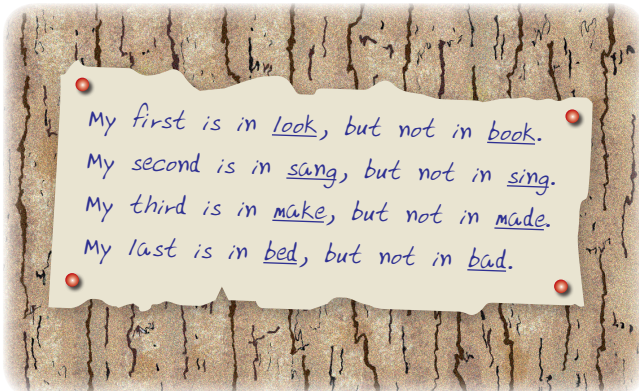 My first is in look, but not in book.
My second is in sang, but not in sing.
My third is in make, but not in made.
My last is in bed, but not in bad.